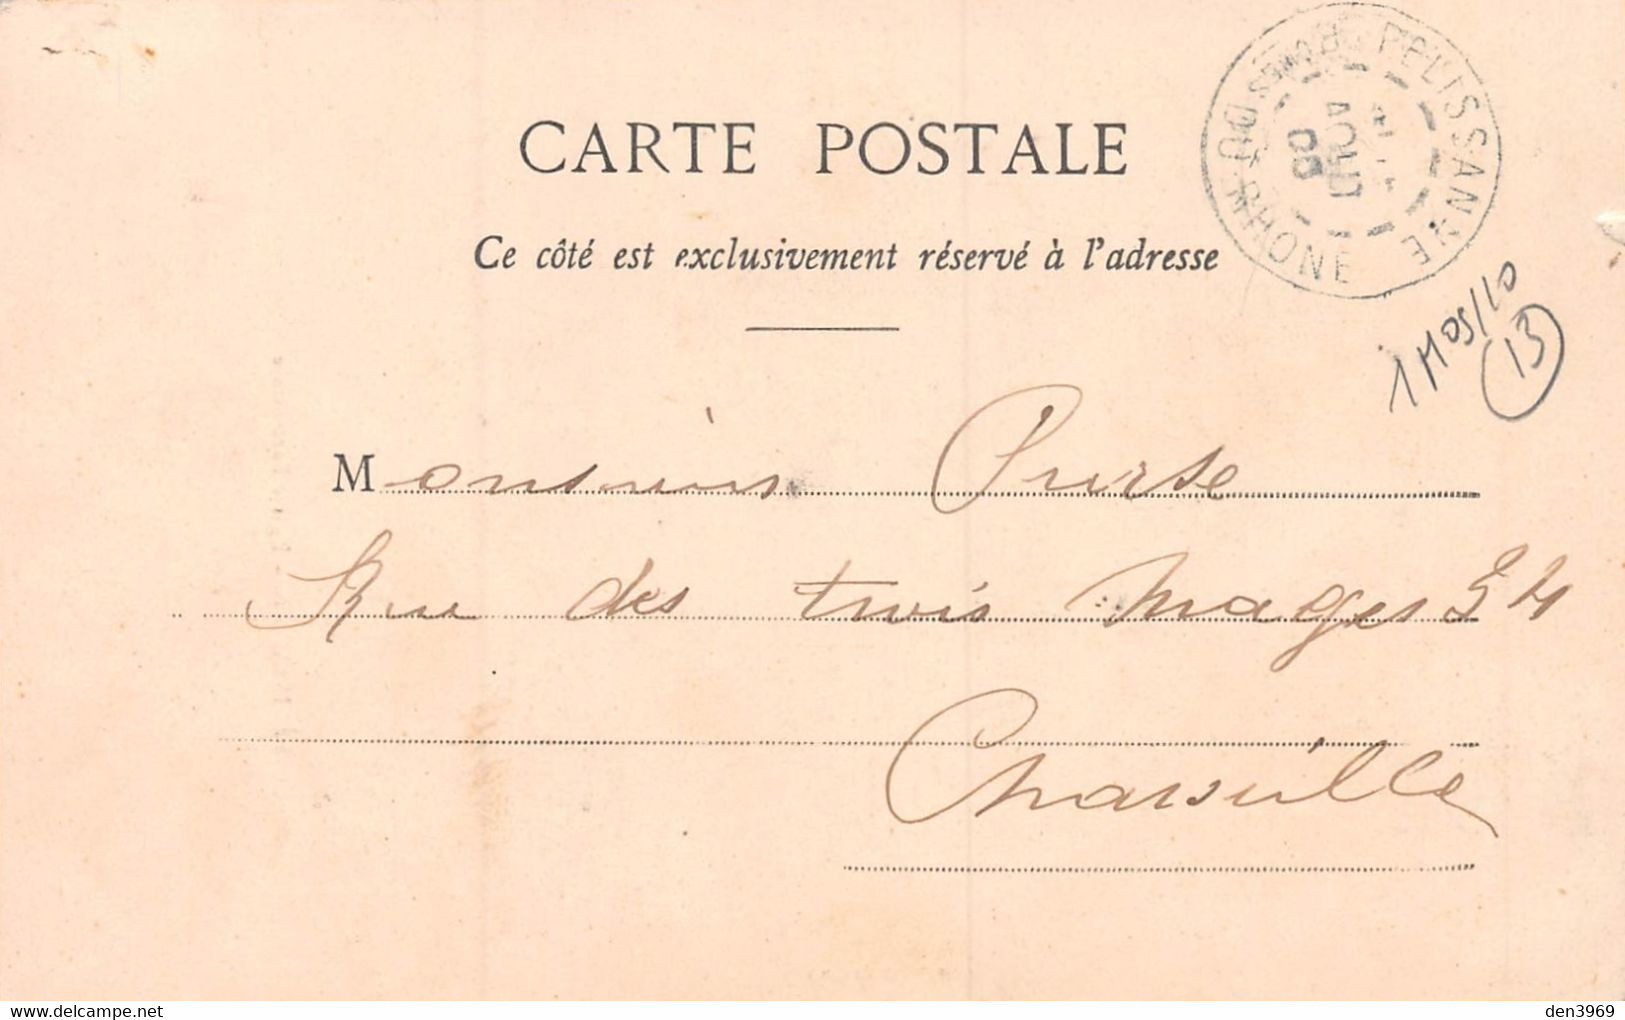 CARTE POSTALE
Ce côté est exclusivement réservé à l'adresse
PELISSANNE
BCHES DU RHONE
AOUT
1 M05/10
13
Monsieur
Rue des trois Mages 34
Marseille
delcampe.net
den3969